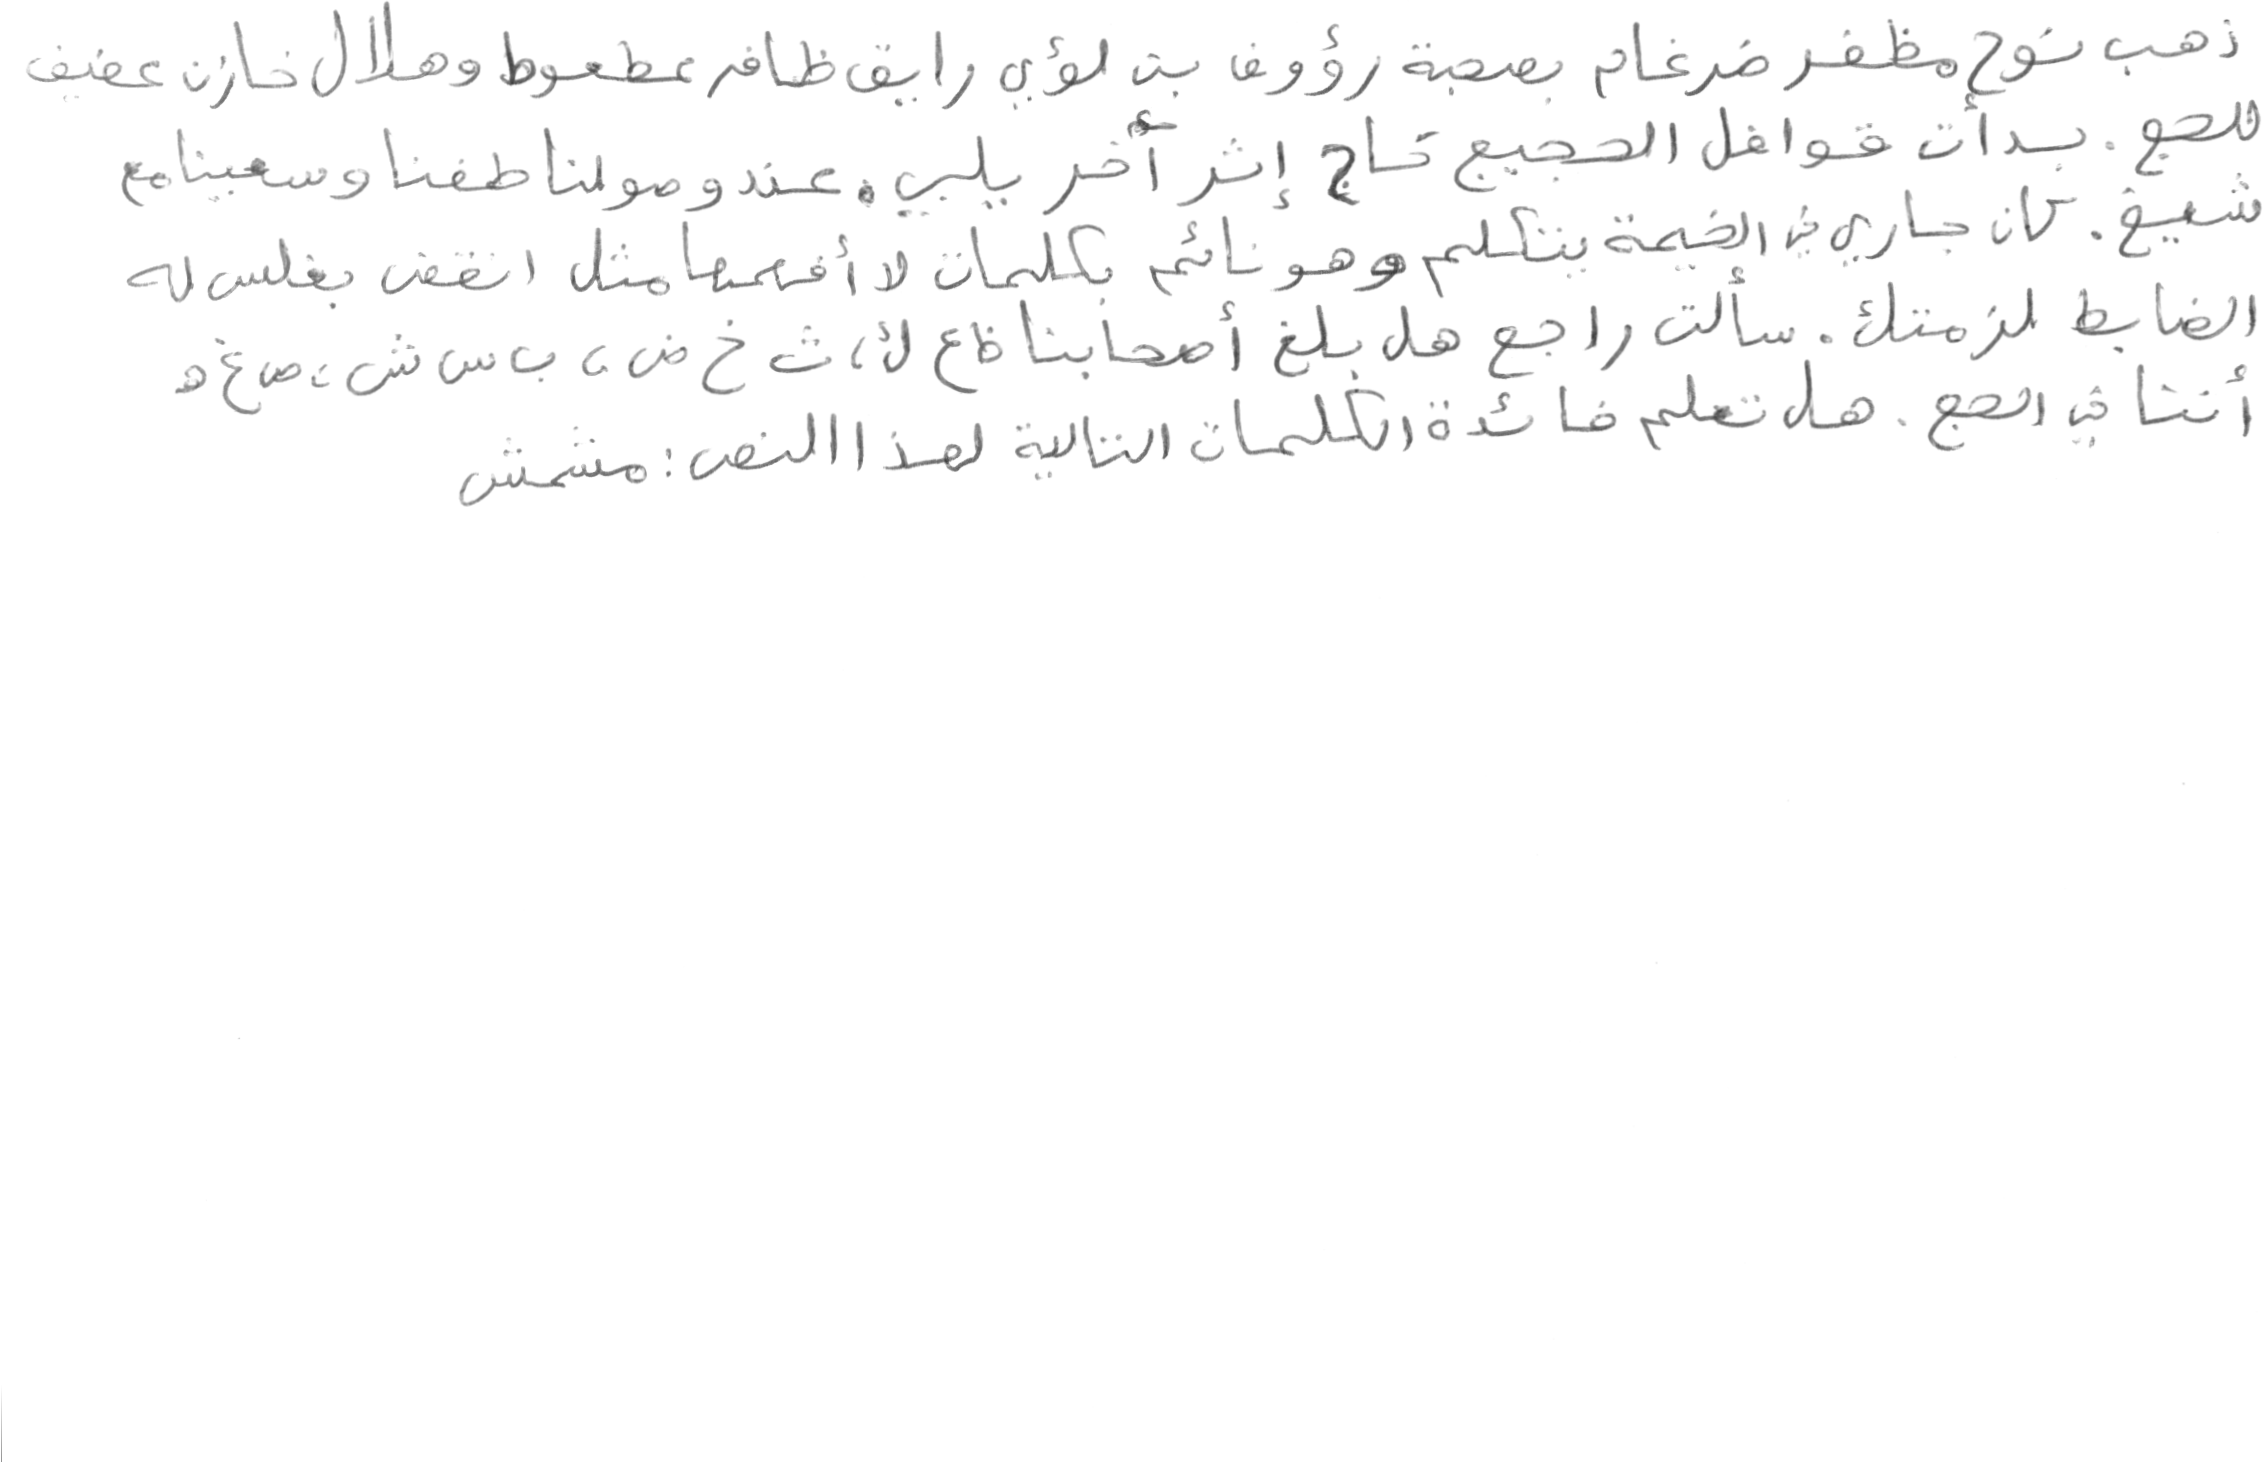 ذهب نوح مظفر ضرغام بصحبة رؤوف بن لؤي رايق ظافر عطعوط وهلال خازن عفيف
للحج. بدأت قوافل الحجيج حاج إثر آخر يلبي. عند وصولنا طفنا وسعينا مع
شيخ. كان جاري في الخيمة يتكلم وهو نائم بكلمات لا أفهمها مثل انقض بغلس له
الضابط لزمتك. سألت راجع هل بلغ أصحابنا ظ ع ك، ث خ ض، ب س ش، ص غ ه
أننا في الحج. هل تعلم فائدة الكلمات التالية لهذا النص: مشمش